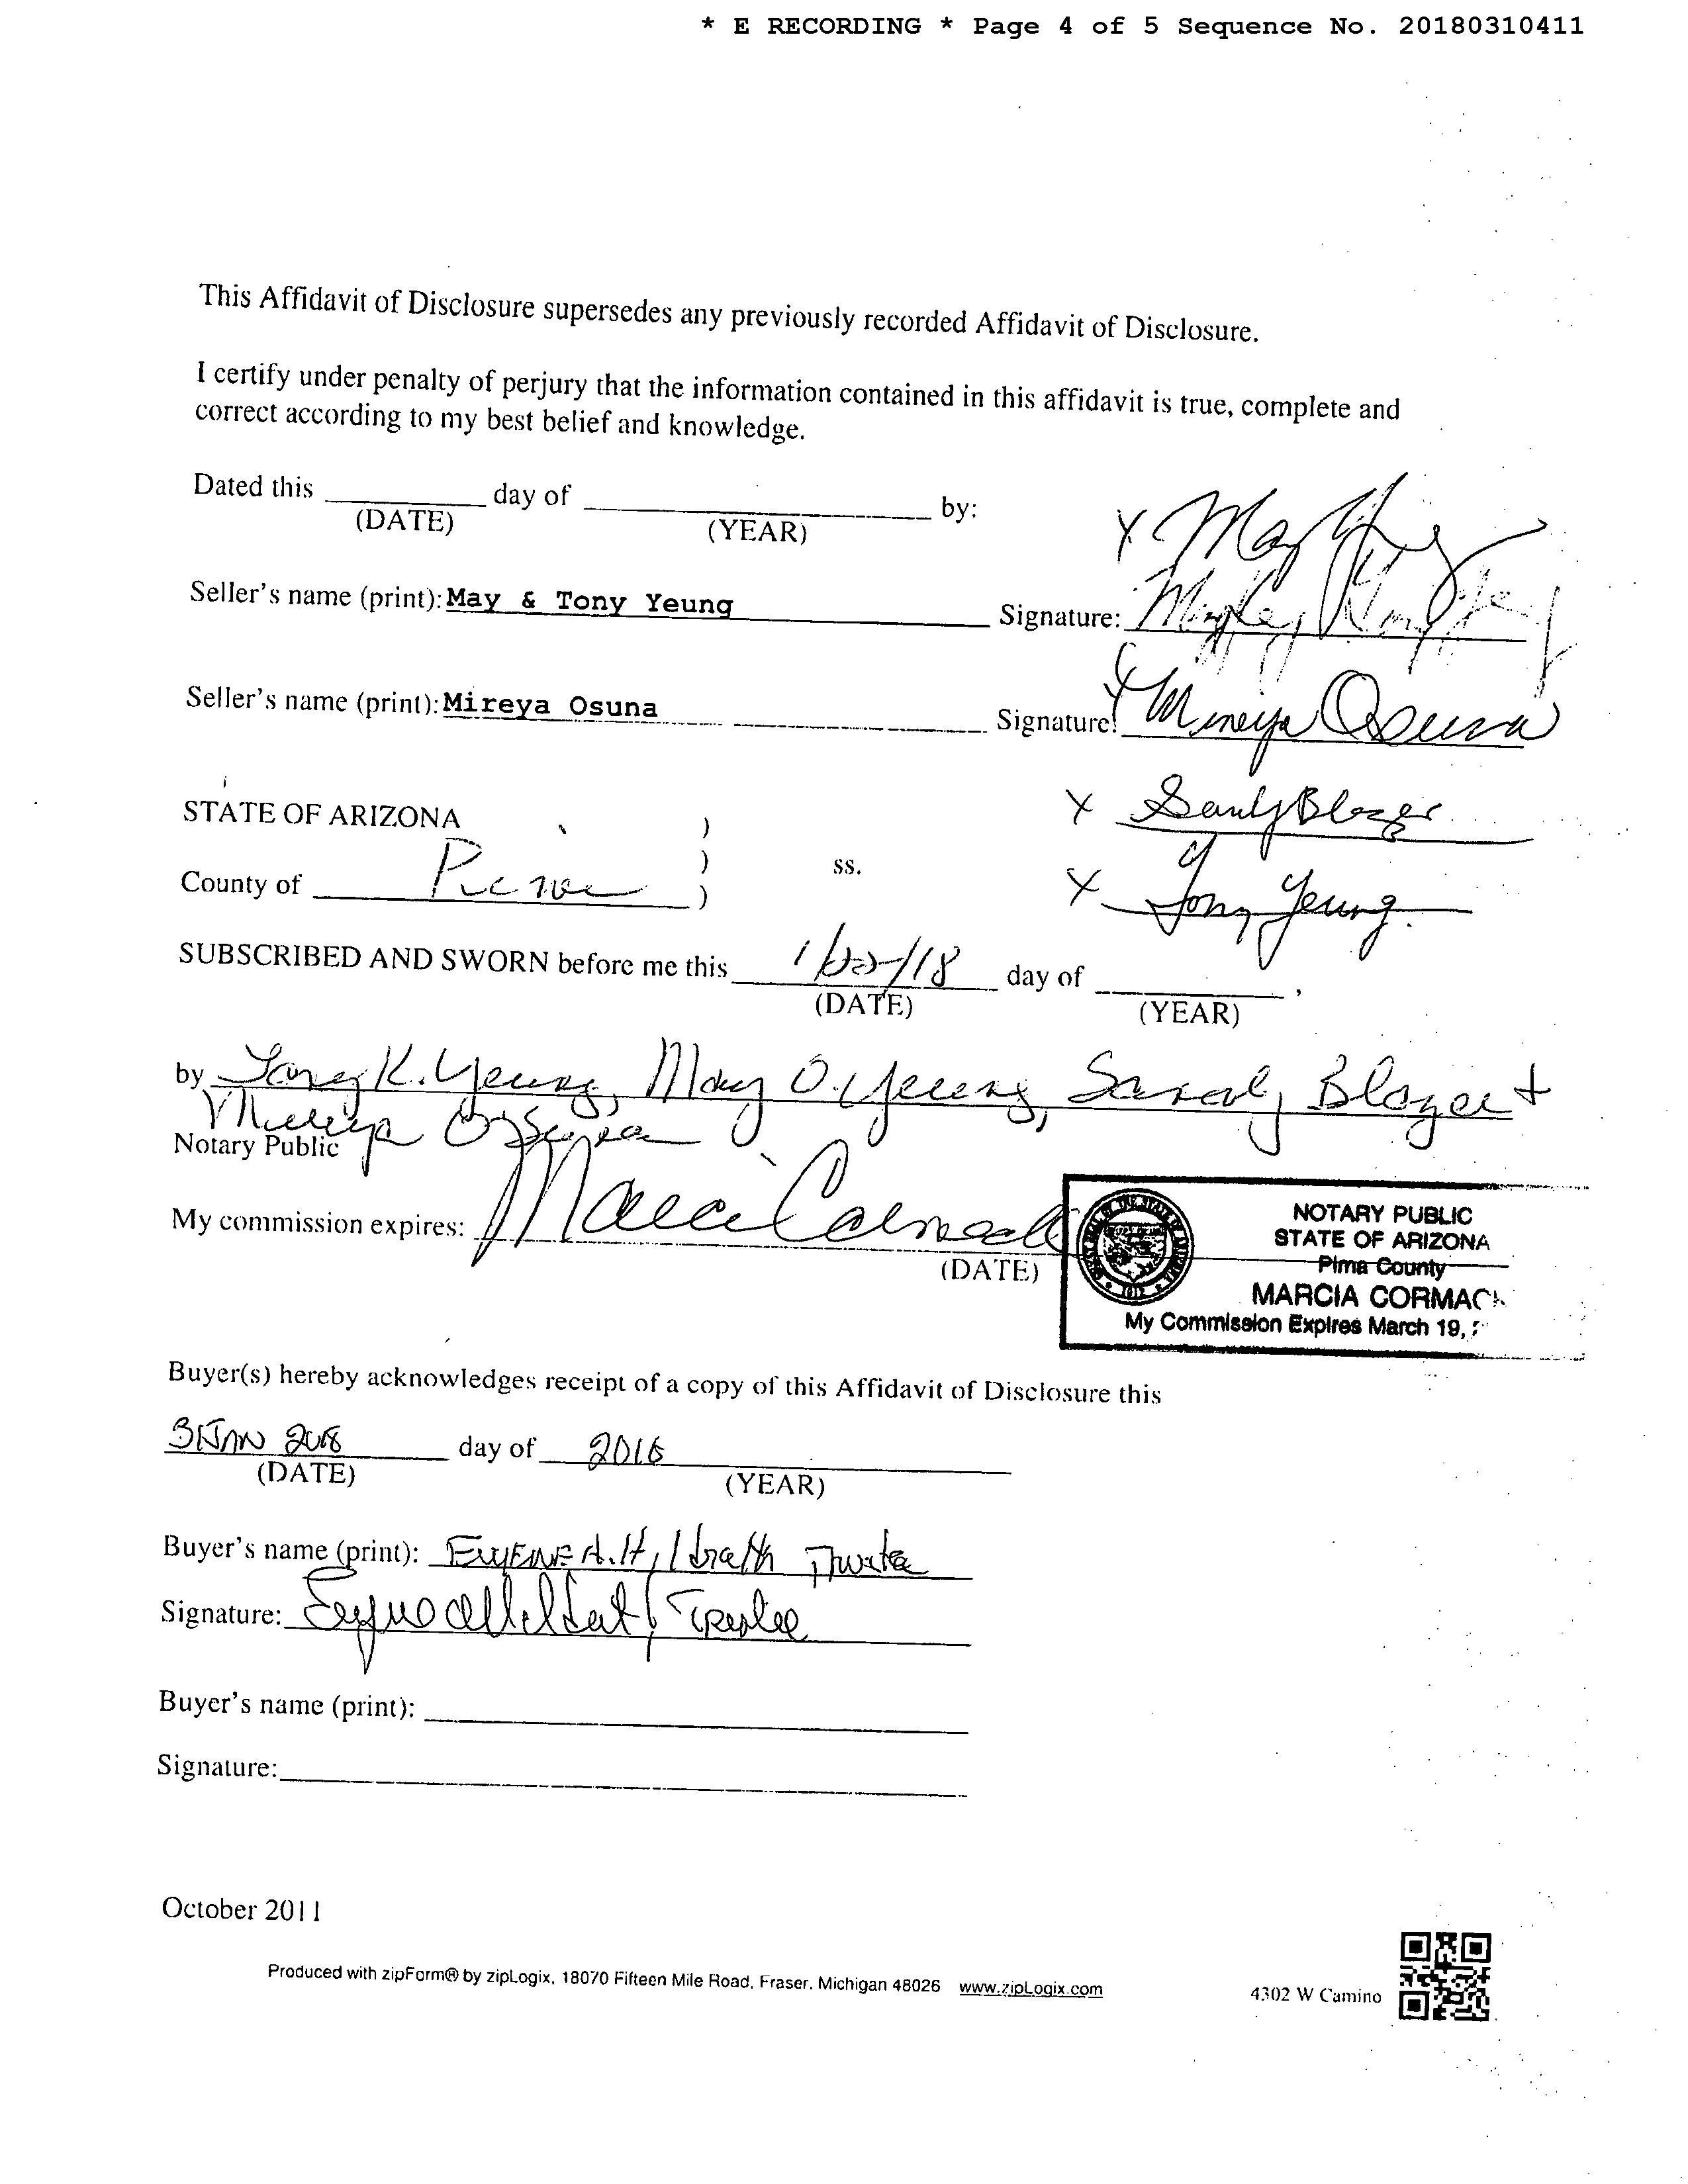 * E RECORDING * Page 4 of 5 Sequence No. 20180310411
This Affidavit of Disclosure supersedes any previously recorded Affidavit of Disclosure.
I certify under penalty of perjury that the information contained in this affidavit is true, complete and
correct according to my best belief and knowledge.
Dated this ________ day of ________ by:
(DATE) (YEAR)
Seller's name (print): May & Tony Yeung Signature:
Seller's name (print): Mireya Osuna Signature: x Mireya Osuna
STATE OF ARIZONA ) x Sandy Blazer
)
County of Pima ) ss. x Tony Yeung
SUBSCRIBED AND SWORN before me this 1/22/18 day of ________,
(DATE) (YEAR)
by Tony K. Yeung, May O. Yeung, Sandy Blazer +
Mireya Osuna
Notary Public
My commission expires: Marcia Cormack
(DATE)
NOTARY PUBLIC
STATE OF ARIZONA
Pima County
MARCIA CORMACK
My Commission Expires March 19,
Buyer(s) hereby acknowledges receipt of a copy of this Affidavit of Disclosure this
31 JAN 2018 day of 2018
(DATE) (YEAR)
Buyer's name (print): EUGENE A. Hildrath Trustee
Signature: Trustee
Buyer's name (print):
Signature:
October 2011
Produced with zipForm® by zipLogix, 18070 Fifteen Mile Road, Fraser, Michigan 48026 www.zipLogix.com
4302 W Camino